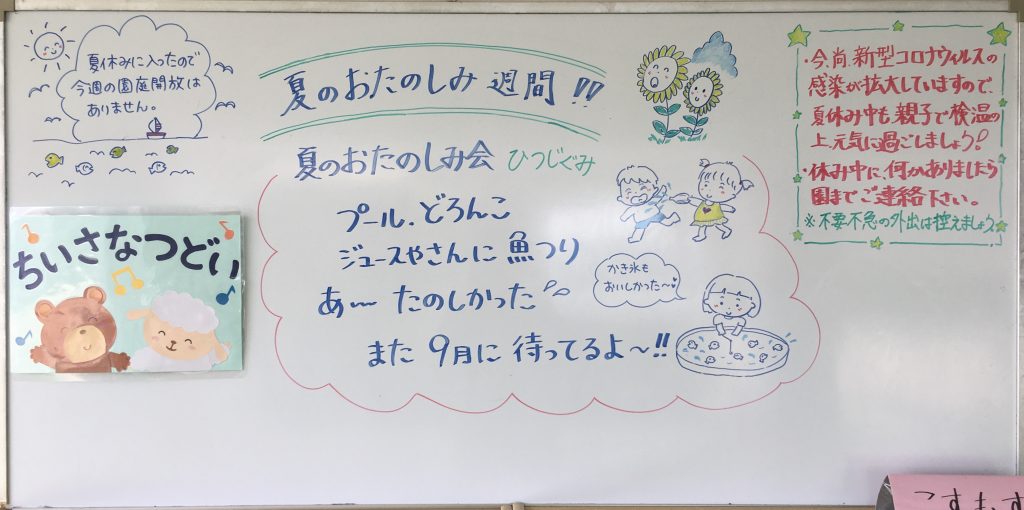 夏休みに入ったので
今週の園庭開放は
ありません。
夏のおたのしみ 週間!!
夏のおたのしみ会 ひつじぐみ
プール.どろんこ
ジュースやさんに 魚つり
あ〜 たのしかった
また 9月に 待ってるよ〜!!
かき氷も
おいしかった〜
・今尚、新型コロナウィルスの
感染が拡大していますので、
夏休み中も、親子で検温の
上、元気に過ごしましょう!
・休み中に、何かありましたら
園までご連絡下さい。
※不要不急の外出は控えましょう
ちいさなつどい